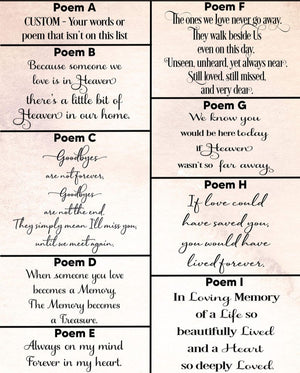 Poem A
CUSTOM - Your words or
poem that isn't on this list
Poem B
Because someone we
love is in Heaven
there's a little bit of
Heaven in our home.
Poem C
Goodbyes
are not forever,
Goodbyes
are not the end.
They simply mean I'll miss you,
until we meet again.
Poem D
When someone you love
becomes a Memory.
The Memory becomes
a Treasure.
Poem E
Always on my mind
Forever in my heart.
Poem F
The ones we love never go away.
They walk beside Us
even on this day.
Unseen, unheard, yet always near.
Still loved, still missed,
and very dear.
Poem G
We know you
would be here today
if Heaven
wasn't so far away.
Poem H
If love could
have saved you,
you would have
lived forever.
Poem I
In Loving Memory
of a Life so
beautifully Lived
and a Heart
so deeply Loved.